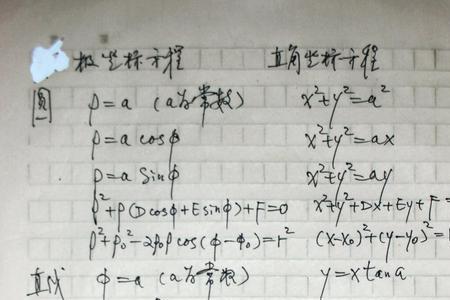 极坐标方程 直角坐标方程
圆 ρ=a (a为常数) x²+y²=a²
ρ=a cosφ x²+y²=ax
ρ=a sinφ x²+y²=ay
ρ²+ρ(Dcosφ+Esinφ)+F=0 x²+y²+Dx+Ey+F=
ρ²+ρ₀²-2ρ₀ρcos(φ-φ₀)=r² (x-x₀)²+(y-y₀)²=
直线 φ=a (a为常数) y=xtana